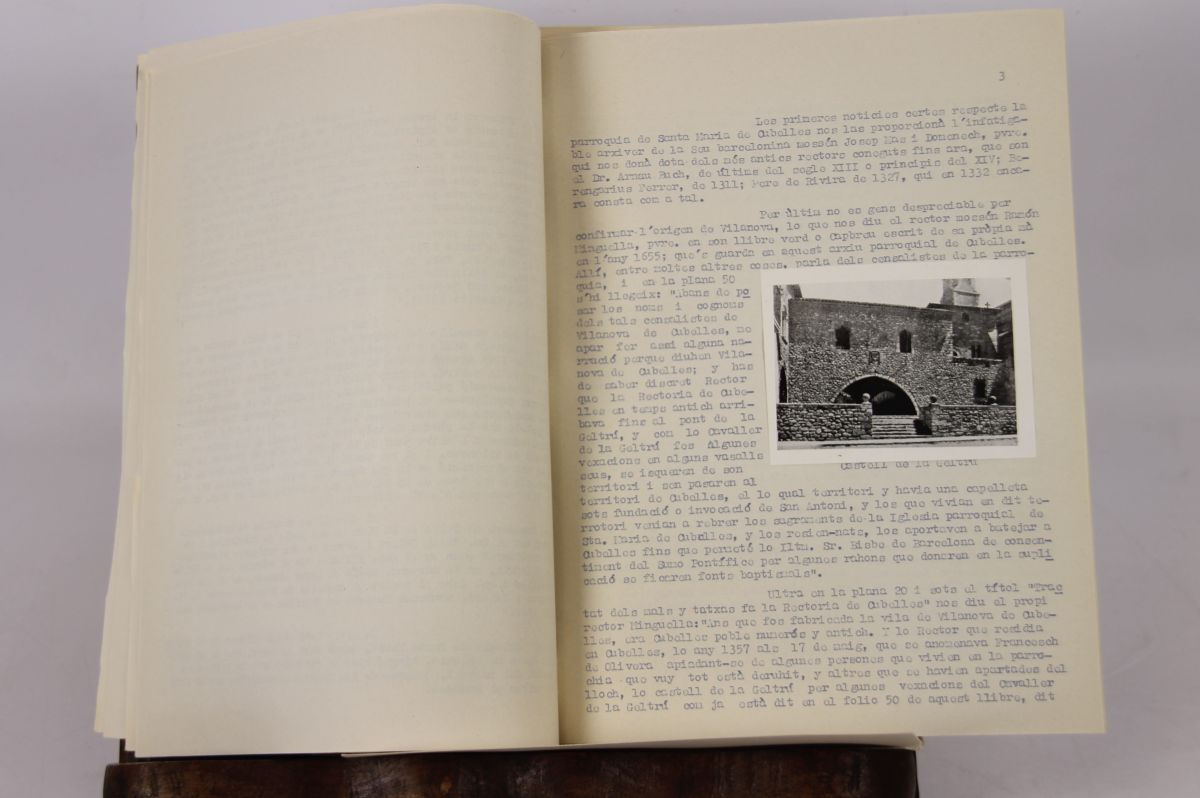 3
Les primeres noticies certes respecte la
parroquia de Santa Maria de Cubelles nos las proporcionà l'infatiga-
ble arxiver de la Seu barcelonina mossén Josep Mas i Domenech, pvre.
qui nos donà dota dels més antics rectors coneguts fins ara, que son
el Dr. Arnau Buch, de últims del segle XIII o principis del XIV; Be-
rengarius Ferrer, de 1311; Pere de Rivira de 1327, qui en 1332 enca-
ra consta com a tal.
Per últim no es gens despreciable per
confirmar l'origen de Vilanova, lo que nos diu el rector mossén Ramón
Minguella, pvre. en son llibre verd o Capbreu escrit de sa pròpia mà
en l'any 1655; que's guarda en aquest arxiu parroquial de Cubelles.
Allí, entre moltes altres coses, parla dels censalistes de la parro-
quia, i en la plana 50
s'hi llegeix: "Abans de po
sar los noms i cognous
dels tals censalistes de
Vilanova de Cubelles, me
apar fer assi alguna na-
rrució perque diuhen Vila-
nova de Cubelles; y has
de saber discret Rector
que la Rectoria de Cube-
lles en temps antich arri-
bava fins al pont de la
Geltrí, y com lo Cavaller
de la Geltrí fes Algunes
vexacions en alguns vasalls
seus, se isqueren de son
territori i sen pasaren al
Castell de la Geltrú
territori de Cubelles, el lo qual territori y havia una capelleta
sots fundació o invocació de San Antoni, y los que vivian en dit te-
rrotori venian a rebrer los sagraments de la Iglesia parroquial de
Sta. Maria de Cubelles, y los resien-nats, los aportaven a batejar a
Cubelles fins que permeté lo Iltm. Sr. Bisbe de Barcelona de consen-
timent del Sumo Pontífice per algunes rahons que donaren en la supli
cació se ficaren fonts baptismals".
Ultra en la plana 20 i sots el títol "Trac
tat dels mals y tatxas fa la Rectoria de Cubelles" nos diu el propi
rector Minguella: "Ans que fos fabricada la vila de Vilanova de Cube-
lles, era Cubelles poble numerós y antich. Y lo Rector que residia
en Cubelles, lo any 1357 als 17 de maig, que se anomenava Francesch
de Olivera apiadant-se de algunes persones que vivien en la parro-
chia que vuy tot està deruhit, y altres que se havien apartades del
lloch, lo castell de la Geltrí per algunes vexacions del Cavaller
de la Geltrí com ja està dit en el folio 50 de aquest llibre, dit